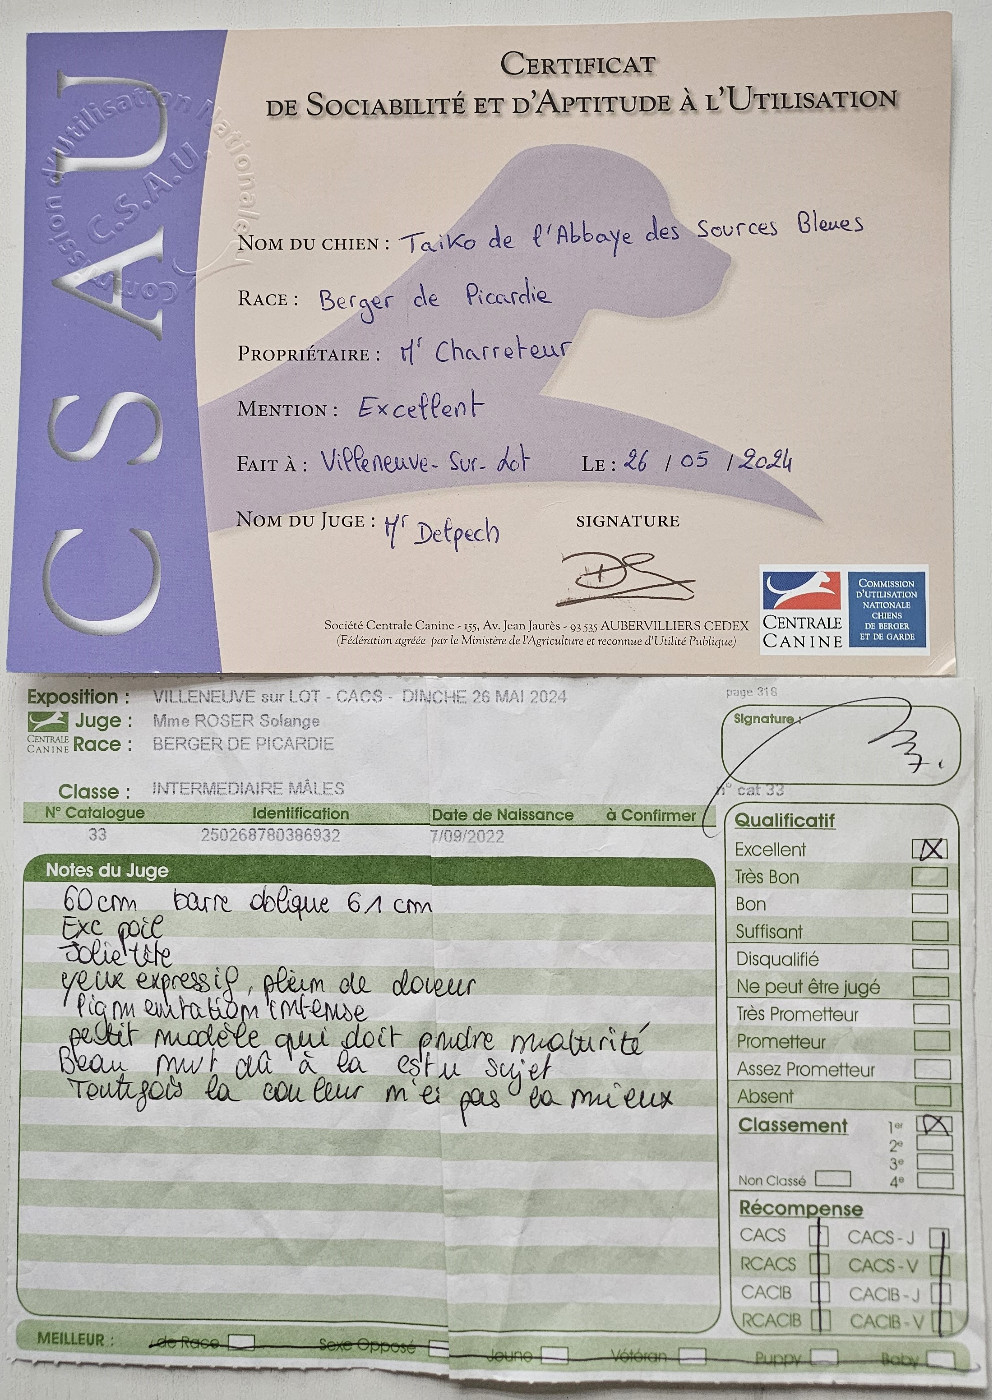 CSAU
Commission d'Utilisation Nationale
C.S.A.U.
CERTIFICAT
DE SOCIABILITÉ ET D'APTITUDE À L'UTILISATION
NOM DU CHIEN : Taiko de l'Abbaye des Sources Bleues
RACE : Berger de Picardie
PROPRIÉTAIRE : Mr Charreteur
MENTION : Excellent
FAIT À : Villeneuve-Sur-Lot LE : 26 / 05 / 2024
NOM DU JUGE : Mr Delpech SIGNATURE
Société Centrale Canine - 155, Av. Jean Jaurès - 93 535 AUBERVILLIERS CEDEX
(Fédération agréée par le Ministère de l'Agriculture et reconnue d'Utilité Publique)
CENTRALE
CANINE
COMMISSION
D'UTILISATION
NATIONALE
CHIENS
DE BERGER
ET DE GARDE
Exposition : VILLENEUVE sur LOT - CACS - DINCHE 26 MAI 2024 page 318
Juge : Mme ROSER Solange Signature :
CENTRALE
CANINE
Race : BERGER DE PICARDIE
Classe : INTERMEDIAIRE MÂLES n° cat 33
N° Catalogue Identification Date de Naissance à Confirmer
33 250268780386932 7/09/2022
Notes du Juge
60cm barre oblique 61 cm
Exc poil
Jolie tête
yeux expressif, plein de douceur
Pigmentation intense
petit modèle qui doit pndre maturité
Beau mvt dû à la sujet
Toutefois la couleur m'ei pas la mieux
Qualificatif
Excellent X
Très Bon
Bon
Suffisant
Disqualifié
Ne peut être jugé
Très Prometteur
Prometteur
Assez Prometteur
Absent
Classement 1er X
2e
3e
Non Classé 4e
Récompense
CACS CACS - J
RCACS CACS - V
CACIB CACIB - J
RCACIB CACIB - V
MEILLEUR : de Race Sexe Opposé Jeune Vétéran Puppy Baby